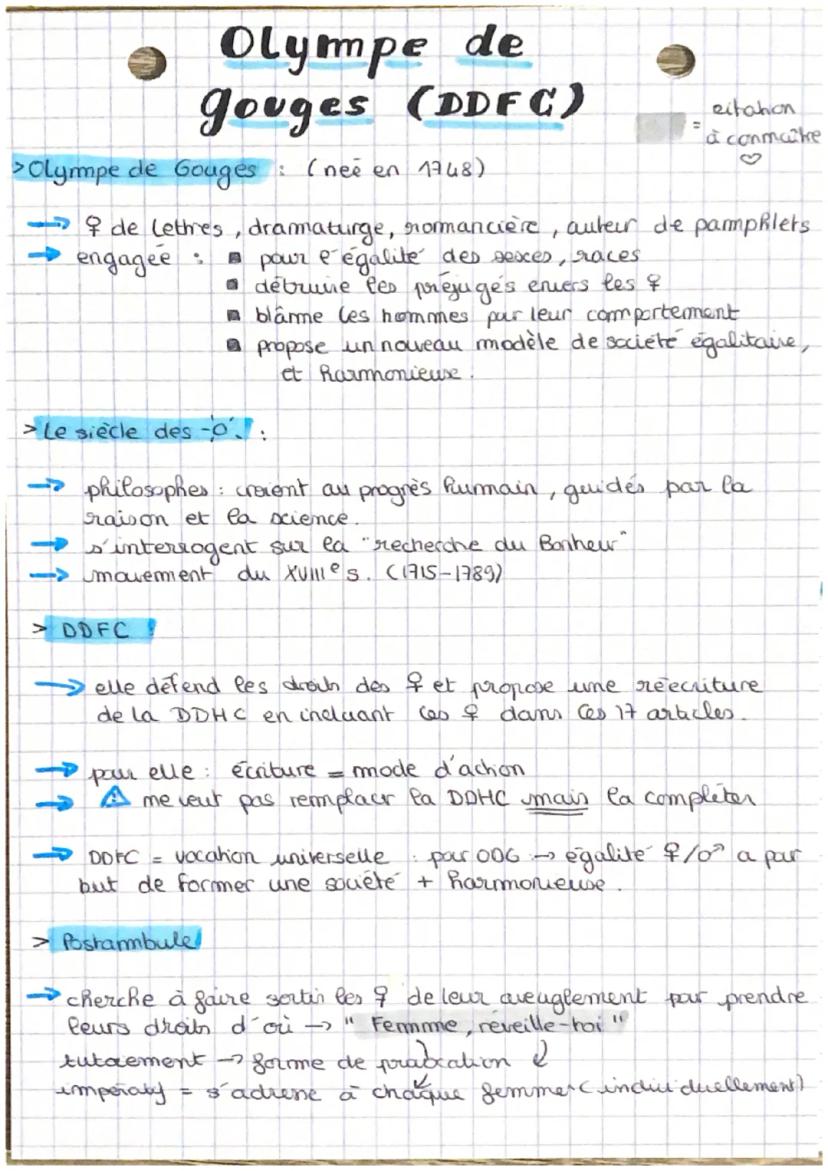 Olympe de
gouges (DDFC)
= citation
à connaître
♡
> Olympe de Gouges : (neé en 1748)
→ ♀ de lettres, dramaturge, romancière, auteur de pamphlets
→ engagée : ▪ pour l'égalité des sexces, races
▪ détruire les préjugés envers les ♀
▪ blâme les hommes pur leur comportement
▪ propose un nouveau modèle de société égalitaire,
et harmonieuse.
> Le siècle des :
→ philosophes : croient au progrès humain, guidés par la
raison et la science.
→ s'interrogent sur la "recherche du Bonheur"
→ mouvement du XVIIIe s. (1715-1789)
> DDFC :
→ elle défend les droits des ♀ et propose une réecriture
de la DDHC en incluant les ♀ dans les 17 articles.
→ pour elle : écriture = mode d'action
→ ⚠ ne veut pas remplacr la DDHC mais la compléter
→ DDFC = vocation universelle : pour ODG → égalité ♀/♂ a pour
but de former une société + harmonieuse.
> Postambule
→ cherche à faire sortir les ♀ de leur aveuglement pour prendre
leurs droits d'où → "Femme, réveille-toi"
tutoiement → forme de
impératif = s'adresse à chaque femme (individuellement)